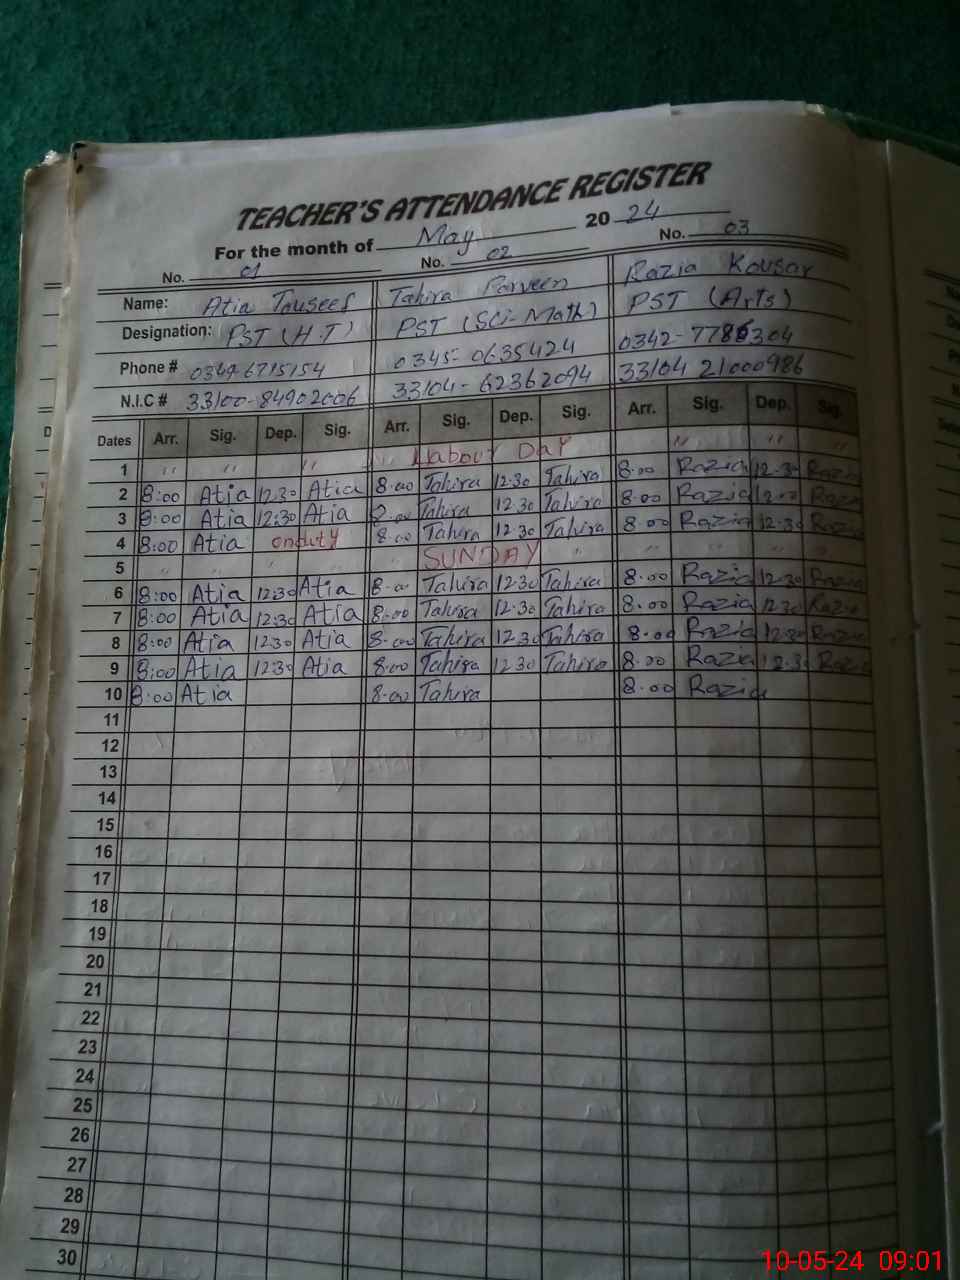 TEACHER'S ATTENDANCE REGISTER
For the month of May 2024
No. 01 No. 02 No. 03
Name: Atia Touseef Tahira Parveen Razia Kousar
Designation: PST (H.T) PST (Sci-Math) PST (Arts)
Phone # 03496715154 0345-0635424 0342-7786304
N.I.C # 33100-84902006 33104-62362094 33104 21000986
Dates Arr. Sig. Dep. Sig. Arr. Sig. Dep. Sig. Arr. Sig. Dep. Sig.
1 " " " " Labour Day " " "
2 8:00 Atia 12:30 Atia 8:00 Tahira 12:30 Tahira 8:00 Razia 12:30 Razia
3 8:00 Atia 12:30 Atia 8:00 Tahira 12:30 Tahira 8:00 Razia Razia
4 8:00 Atia onduty 8:00 Tahira 12:30 Tahira 8:00 Razia 12:30 Razia
5 " " " " SUNDAY " " " " "
6 8:00 Atia 12:30 Atia 8:00 Tahira 12:30 Tahira 8:00 Razia 12:30 Razia
7 8:00 Atia 12:30 Atia 8:00 Tahira 12:30 Tahira 8:00 Razia 12:30 Razia
8 8:00 Atia 12:30 Atia 8:00 Tahira 12:30 Tahira 8:00 Razia 12:30 Razia
9 8:00 Atia 12:30 Atia 8:00 Tahira 12:30 Tahira 8:00 Razia 12:30 Razia
10 8:00 Atia 8:00 Tahira 8:00 Razia
11
12
13
14
15
16
17
18
19
20
21
22
23
24
25
26
27
28
29
30
10-05-24 09:01